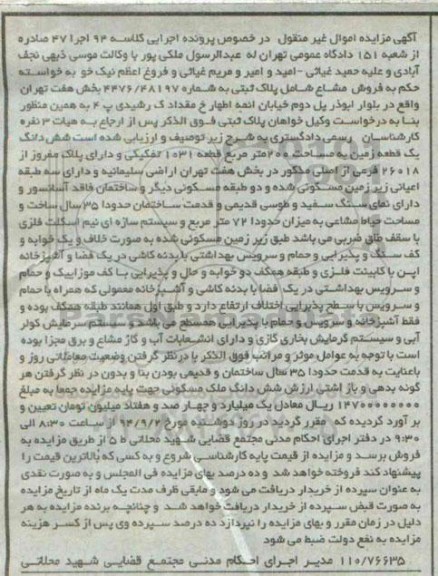 آگهی مزایده اموال غیر منقول در خصوص پرونده اجرایی کلاسه ۹۴ اجرا ۴۷ صادره
از شعبه ۱۵۱ دادگاه عمومی تهران له عبدالرسول ملکی پور با وکالت موسی ذیهی نجف
آبادی و علیه حمید غیاثی -امید و امیر و مریم غیاثی و فروغ اعظم نیک خو به خواسته
حکم به فروش مشاع شامل پلاک ثبتی به شماره ۴۴۷۶/۴۸۱۹۷ بخش هفت تهران
واقع در بلوار ابوذر پل دوم خیابان ائمه اطهار خ مقداد ک رشیدی پ ۴ به همین منظور
بنا به درخواست وکیل خواهان پلاک ثبتی فوق الذکر پس از ارجاع به هیات ۳ نفره
کارشناسان رسمی دادگستری به شرح زیر توصیف و ارزیابی شده است شش دانگ
یک قطعه زمین به مساحت ۲۰۰متر مربع قطعه ۱۰۳۱ تفکیکی و دارای پلاک مفروز از
۲۶۰۱۸ فرعی از اصلی مذکور در بخش هفت تهران اراضی سلیمانیه و دارای سه طبقه
اعیانی زیر زمین مسکونی شده و دو طبقه مسکونی دیگر و ساختمان فاقد آسانسور و
دارای نمای سنگ سفید و طوسی قدیمی و قدمت ساختمان حدودا ۳۵سال ساخت و
مساحت حیاط مشاعی به میزان حدودا ۷۲ متر مربع و سیستم سازه ای نیم اسکلت فلزی
با سقف طاق ضربی می باشد طبق زیر زمین مسکونی شده به صورت خلاف و یک خوابه و
کف سنگ و پذیرایی و حمام و سرویس بهداشتی با بدنه کاشی در یک فضا و آشپزخانه
اپن با کابینت فلزی و طبقه همکف دو خوابه و حال و پذیرایی با کف موزاییک و حمام
و سرویس بهداشتی در یک فضا با بدنه کاشی و آشپزخانه معمولی که همراه با حمام
و سرویس با سطح پذیرایی اختلاف ارتفاع دارد و طبق اول همانند طبقه همکف بوده و
فقط آشپزخانه و سرویس و حمام با پذیرایی همسطح می باشد و سیستم سرمایش کولر
آبی و سیستم گرمایش بخاری گازی و دارای انشعابات آب و گاز مشاع و برق مجزا بوده
است با توجه به عوامل موثر و مراتب فوق الذکر با در نظر گرفتن وضعیت معاملاتی روز و
باعنایت به قدمت حدودا ۳۵ سال ساختمان و قدیمی بودن بنا و بدون در نظر گرفتن هر
گونه بدهی و بازداشتی ارزش شش دانگ ملک مسکونی جهت پایه مزایده جمعا به مبلغ
۱۴۷۰۰۰۰۰۰۰۰ ریال معادل یک میلیارد و چهار صد و هفتاد میلیون تومان تعیین و
بر آورد گردیده که مقرر گردید در روز دوشنبه مورخ ۹۴/۹/۲ از ساعت ۸:۳۰ الی
۹:۳۰ در دفتر اجرای احکام مدنی مجتمع قضایی شهید محلاتی ط ۵ از طریق مزایده به
فروش برسد و مزایده از قیمت پایه کارشناسی شروع و به کسی که بالاترین قیمت را
پیشنهاد کند فروخته خواهد شد و ده درصد بهای مزایده فی المجلس و به صورت نقدی
به عنوان سپرده از خریدار دریافت می شود و مابقی ظرف مدت یک ماه از تاریخ مزایده
به صورت قبض سپرده از خریدار دریافت خواهد شد و چنانچه برنده مزایده به هر
دلیل در زمان مقرر و بهای مزایده را نپردازد ده درصد سپرده وی پس از کسر هزینه
مزایده به نفع دولت ضبط می شود
۱۱۰/۷۶۶۳۵ مدیر اجرای احکام مدنی مجتمع قضایی شهید محلاتی